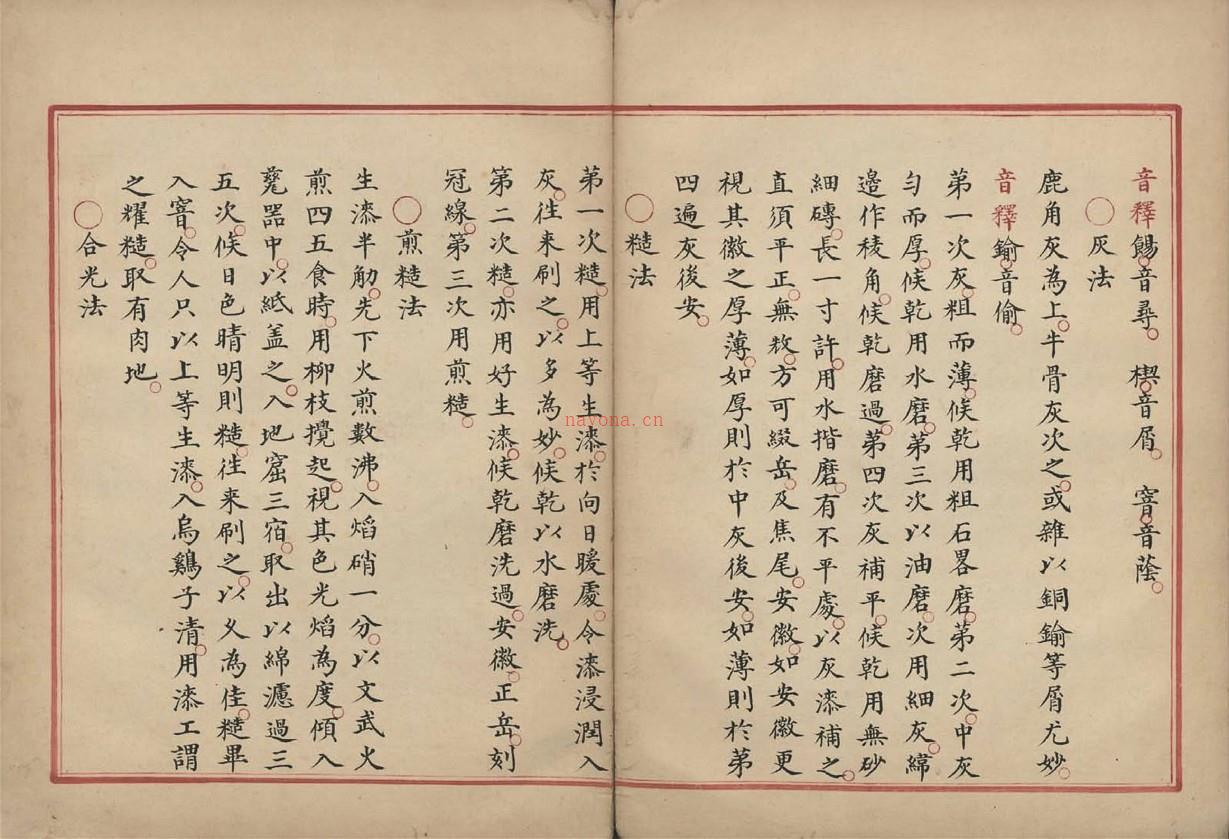 音釋餳音尋。楔音屑。窨音蔭。
○灰法
鹿角灰為上。牛骨灰次之。或雜以銅鍮等屑尤妙。
音釋鍮音偷。
第一次灰。粗而薄。候乾用粗石畧磨。第二次。中灰
勻而厚。候乾用水磨。第三次以油磨。次用細灰。縴
邉作稜角。候乾磨過。第四次灰補平。候乾用無砂
細磚。長一寸許。用水揩磨。有不平處。以灰漆補之。
直須平正。無敎。方可綴岳。及焦尾。安徽。如安徽更
視其徽之厚薄。如厚則於中灰後安。如薄則於第
四遍灰後安。
○糙法
第一次糙。用上等生漆。於向日暖處。令漆浸潤入
灰。徃来刷之。以多為妙。候乾以水磨洗。
第二次糙。亦用好生漆。候乾磨洗過。安徽。正岳。刻
冠線。第三次用煎糙。
○煎糙法
生漆半觔。先下火煎數沸。入焰硝一分。以文武火
煎四五食時。用柳枝攪起。視其色光焰為度。傾入
甆器中。以紙盖之。入地窟三宿。取出以綿濾過三
五次。候日色晴明則糙。徃来刷之。以乆為佳。糙畢
入窨。令人只以上等生漆。入烏鷄子清。用漆工謂
之耀糙。取有肉地。
○合光法
nayona.cn